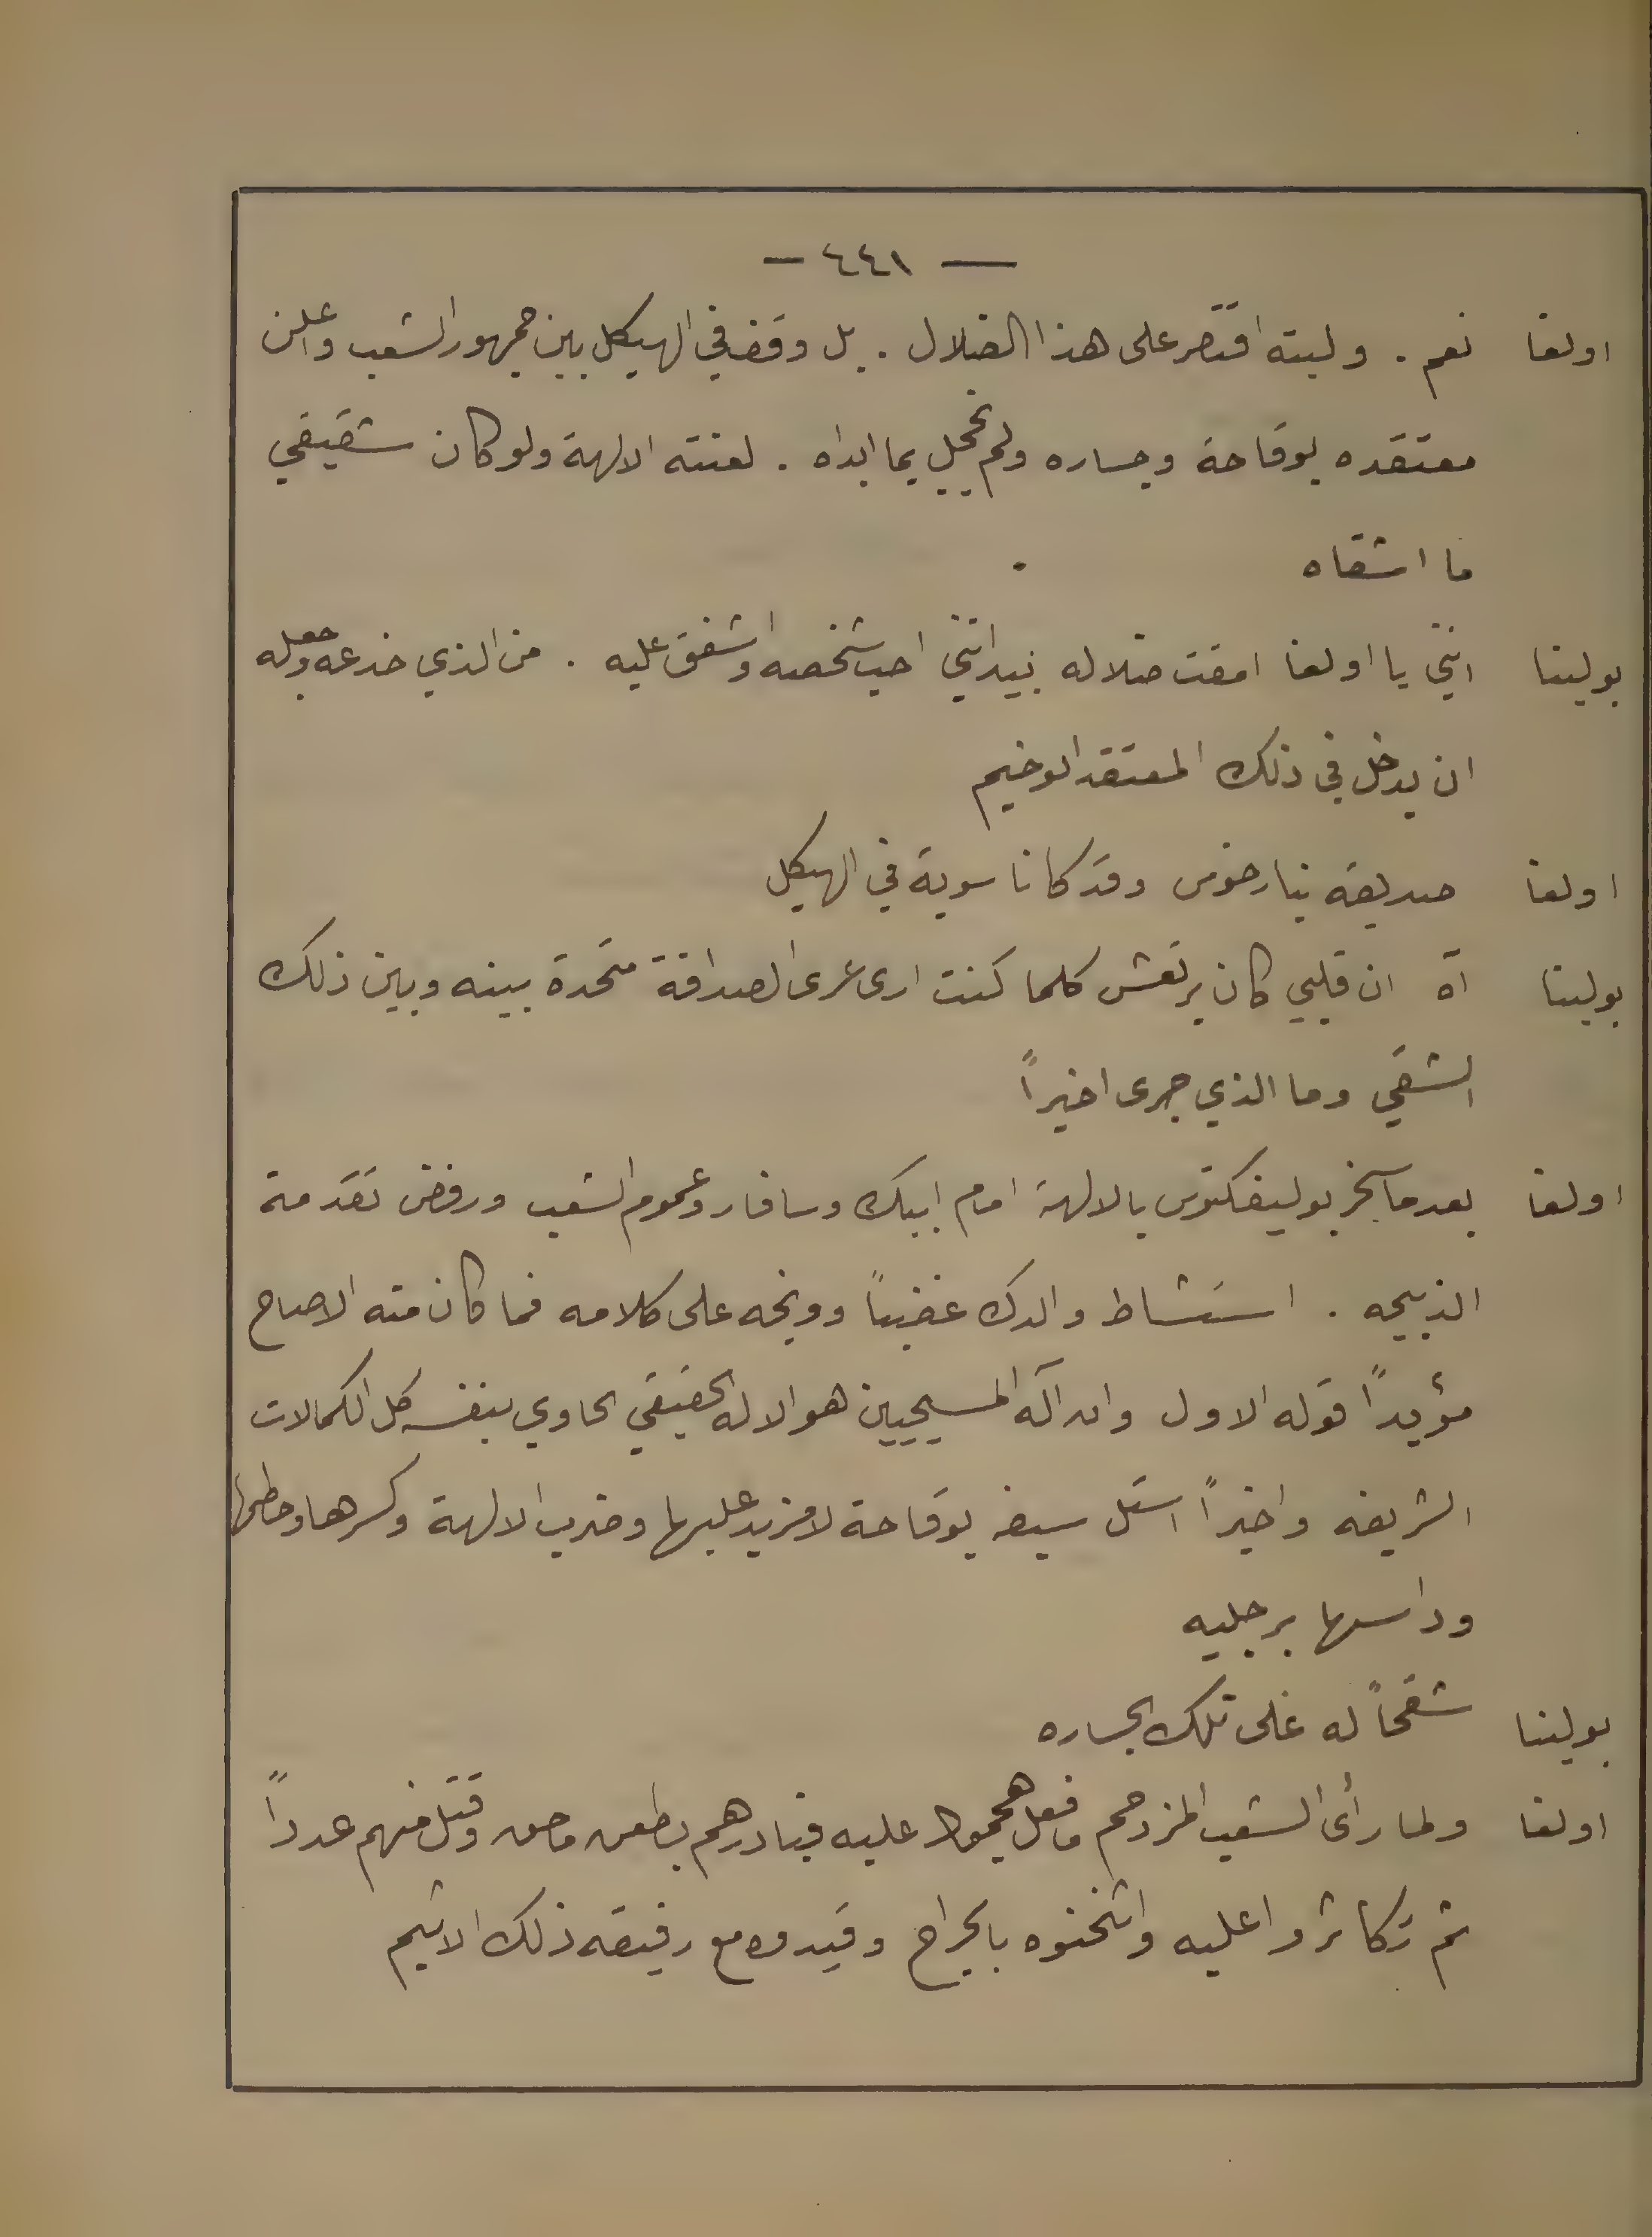 — ٤٤١ —
اولغا نعم . وليته اقتصر على هذا الضلال . بل وقف في الهيكل بين جمهور الشعب واعلن
معتقده بوقاحة وجساره ولم يخجل بما ابداه . لعنته الالهة ولو كان شقيقي
ما اشقاه .
بولينا انني يا اولغا امقت ضلاله بيد انني احب شخصه واشفق عليه . من الذي خدعه وجعله
ان يدخل في ذلك المعتقد الوخيم
اولغا صديقه نيارخوس وقد كانا سوية في الهيكل
بولينا آه ان قلبي كان يرتعش كلما كنت ارى عرى الصداقة متحدة بينه وبين ذلك
الشقي وما الذي جرى اخيراً
اولغا بعد ما سخر بوليفكتوس بالالهة امام ابيك وسافار وعموم الشعب ورفض تقدمة
الذبيحه . استشاط والدك غضباً ووبخه على كلامه فما كان منه الا صاح
مؤيداً قوله الاول وان آله المسيحيين هو الاله الحقيقي الحاوي بنفسه كل الكمالات
الشريفه واخيراً استل سيفه بوقاحة لا مزيد عليها وضرب الالهة وكسرها وحطمها
وداسها برجليه
بولينا شقحاً له على تلك الجساره
اولغا ولما رأى الشعب المزدحم ما فعل هجموا عليه فبادرهم بطعن ماحق وقتل منهم عدداً
ثم تكاثروا عليه واثخنوه بالجراح وقيدوه مع رفيقه ذلك الاثيم